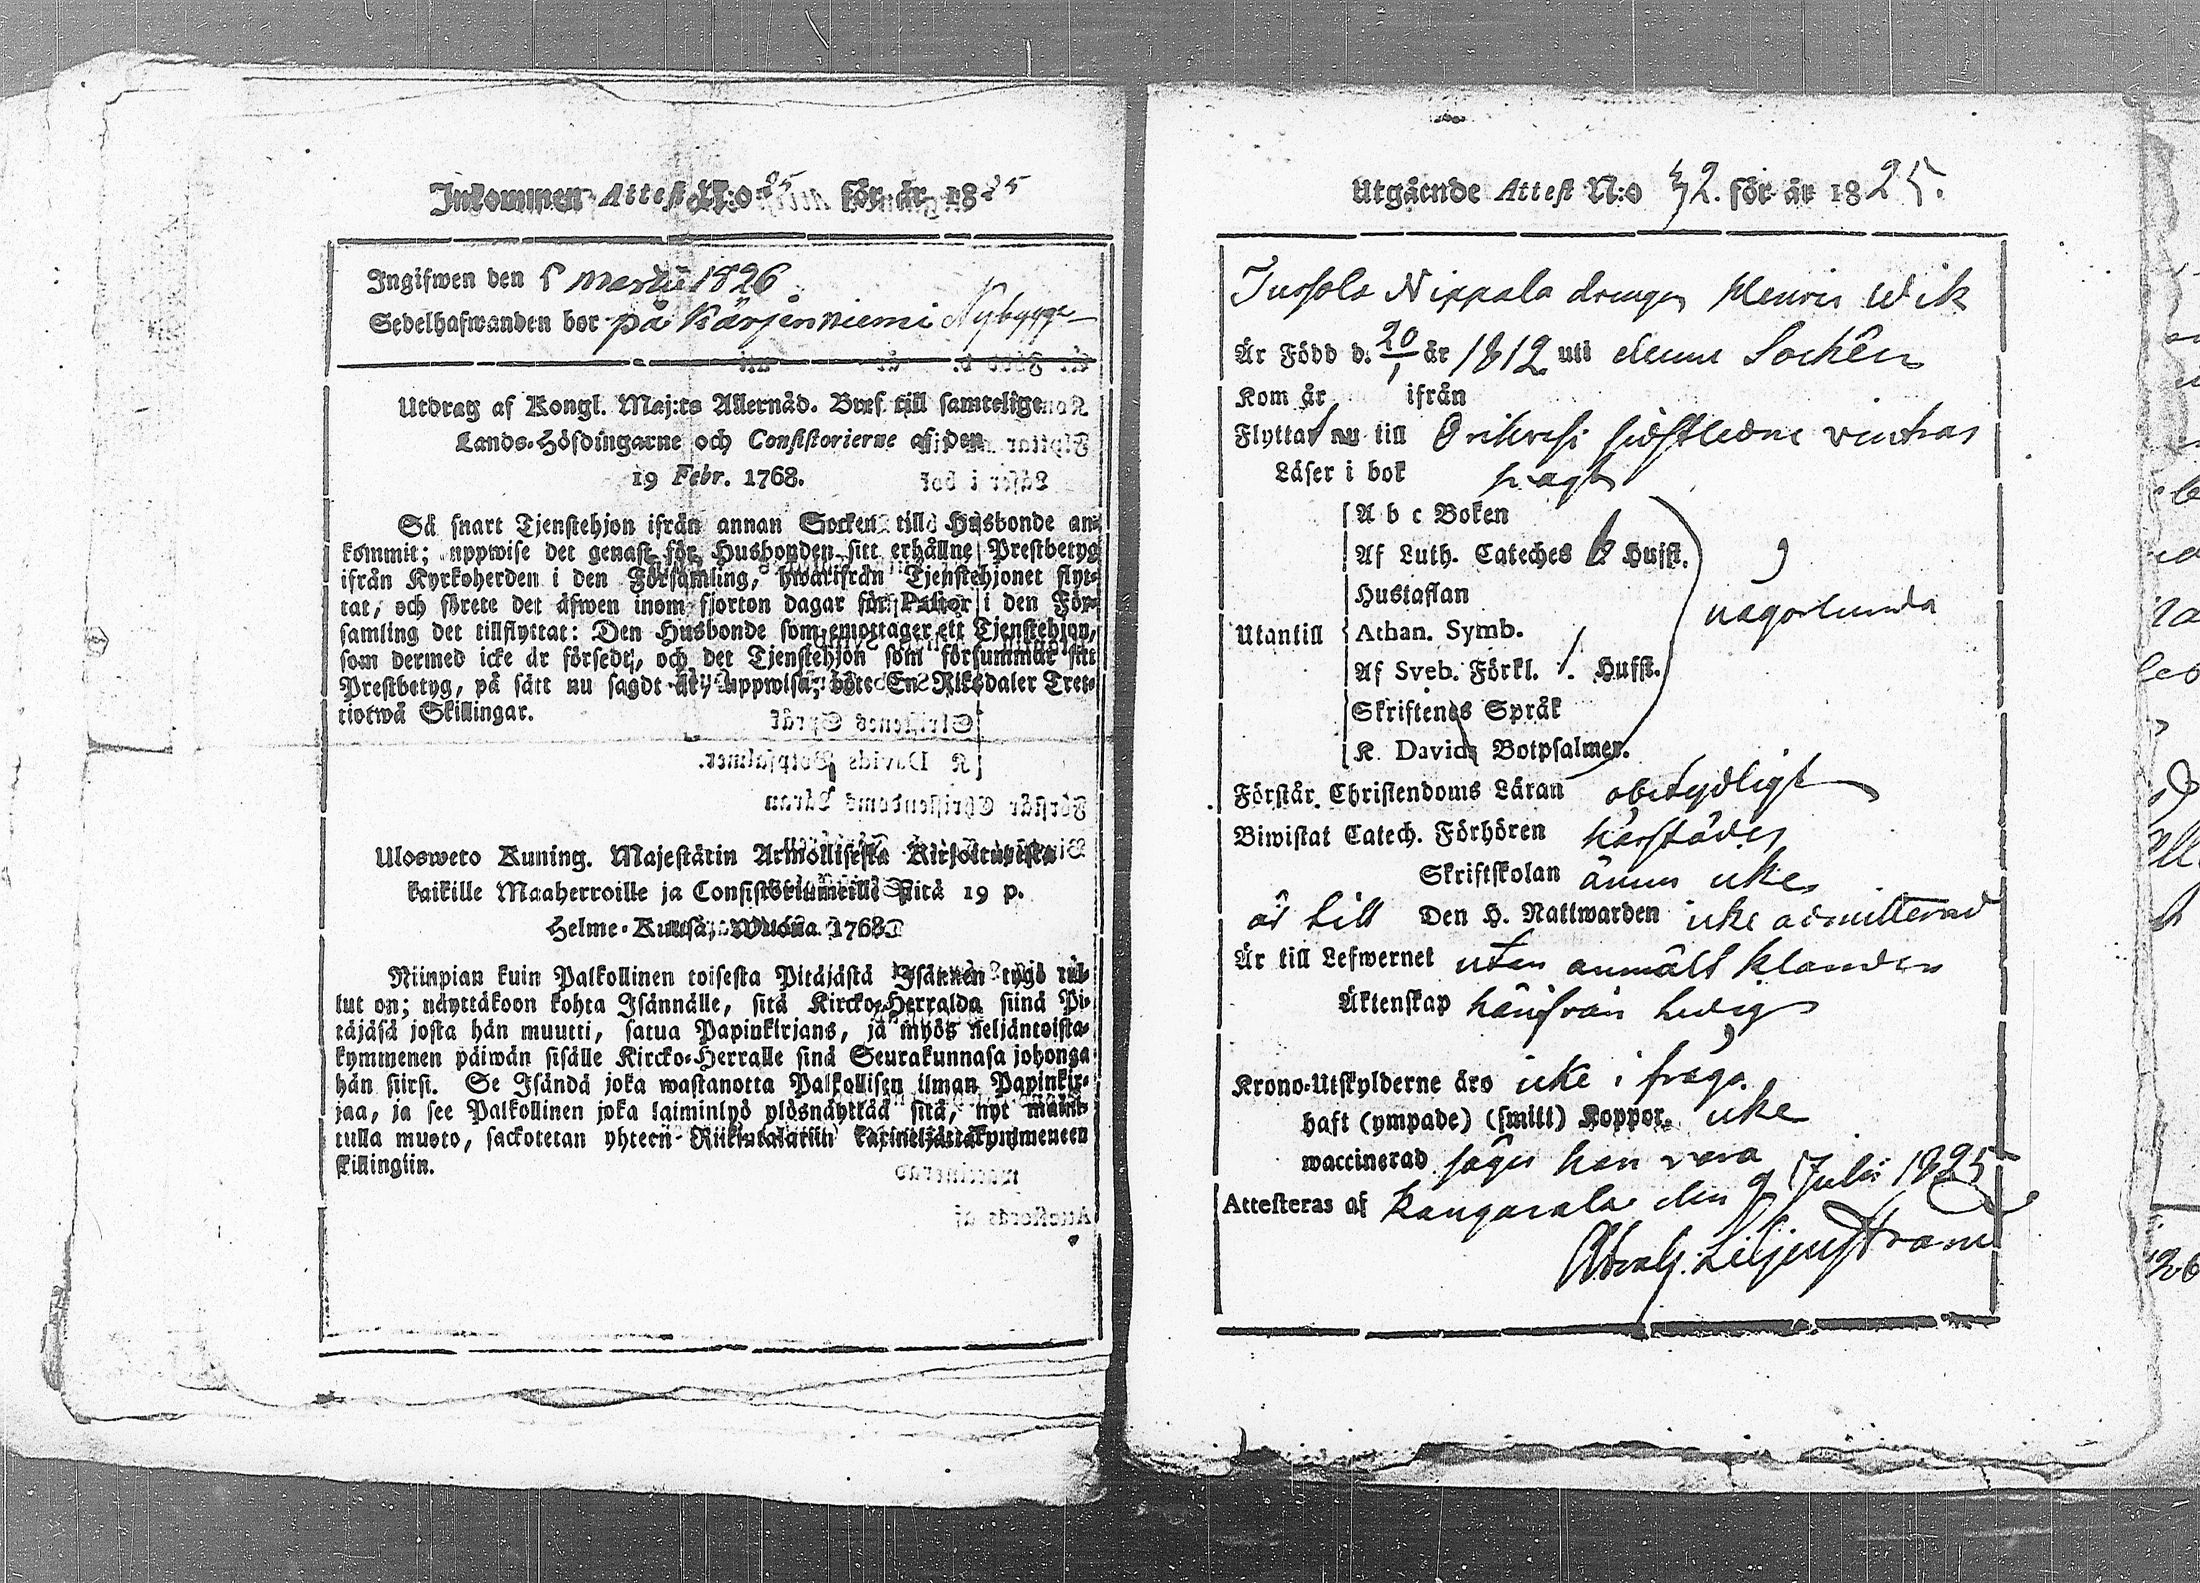 Inkommen Attest N:o 25 för år 1825
Ingifwen den 8 Martii 1826
Sedelhafwanden bor på Kärjenniemi Nybygge
Utdrag af Kongl. Maj:ts Allernåd. Bref till samtelige
Lands-Höfdingarne och Consistorierne af den
19 Febr. 1768.
Så snart Tjenstehjon ifrån annan Socken till Husbonde an-
kommit; uppwise det genast för Husbonden sitt erhållne Prestbetyg
ifrån Kyrkoherden i den Församling, hwarifrån Tjenstehjonet flyt-
tat, och förete det äfwen inom fjorton dagar för Pastor i den För-
samling det tillflyttat: Den Husbonde som emottager ett Tjenstehjon,
som dermed icke är försedt, och det Tjenstehjon som försummar sitt
Prestbetyg, på sätt nu sagdt är, uppwisa, böte En Riksdaler Tret-
tiotwå Skillingar.
Ulosweto Kuning. Majestätin Armollisesta Kirjoituxesta
kaikille Maaherroille ja Consistoriumeille Sitä 19 p.
Helme-Kuusa, Wuona 1768.
Niinpian kuin Palkollinen toisesta Pitäjästä Isännän tygö tul-
lut on; näyttäkoon kohta Isännälle, sitä Kircko-Herralda siinä Pi-
täjäsä josta hän muutti, satua Papinkirjans, ja myös neljäntoista-
kymmenen päiwän sisälle Kircko-Herralle sinä Seurakunnasa johonga
hän siirsi. Se Isändä joka wastanotta Palkollisen ilman Papinkir-
jaa, ja see Palkollinen joka laiminlyö ylösnäyttää sitä, nyt mainit-
tulla muoto, sackotetan yhteen Riikintalariin
killingiin.
Utgående Attest N:o 32. för år 1825.
Nippala drengen Henric Wik
Är Född d. 20/1 år 1812 uti denne Socken
Kom år ifrån
Flyttat nu till Orihvesi sistledne vintras
Läser i bok svagt
A b c Boken
Af Luth. Cateches 6 Hufst.
Hustaflan
Utantill Athan. Symb.
någorlunda
Af Sveb. Förkl. 1. Hufst.
Skriftenes Språk
K. Davids Botpsalmer.
Förstår Christendoms Läran obetydligt
Biwistat Catech. Förhören härstädes
Skriftskolan ännu icke
är till Den H. Nattwarden icke admitterad
Är till Lefwernet utan anmält klander
Äktenskap härifrån ledig
Krono-Utskylderne äro icke i fråga
haft (ympade) (smitt) Koppor. icke
waccinerad säges han vara
Attesteras af Kangasala den 9 Julii 1825
Abrah. Liljenstrand